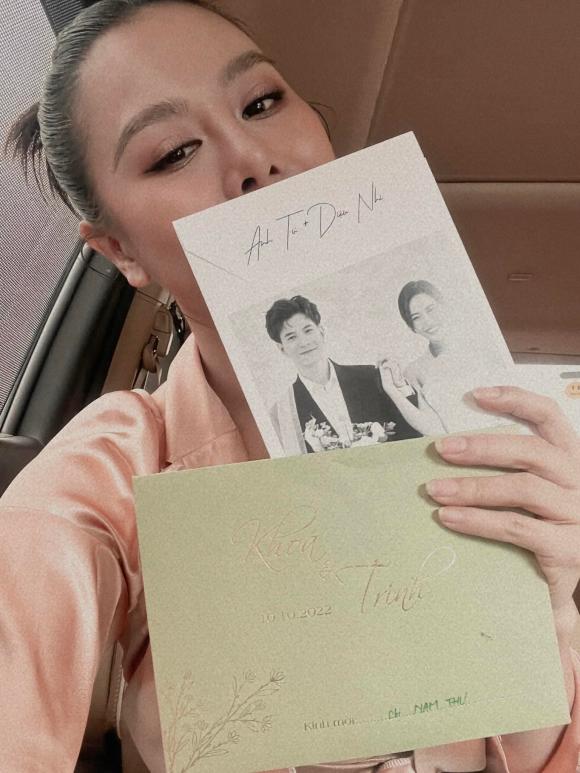 Anh Tú + Diệu Nhi
Khoa
&
Trinh
10.10.2022
Kính mời.......... Chị NAM THƯ ..........